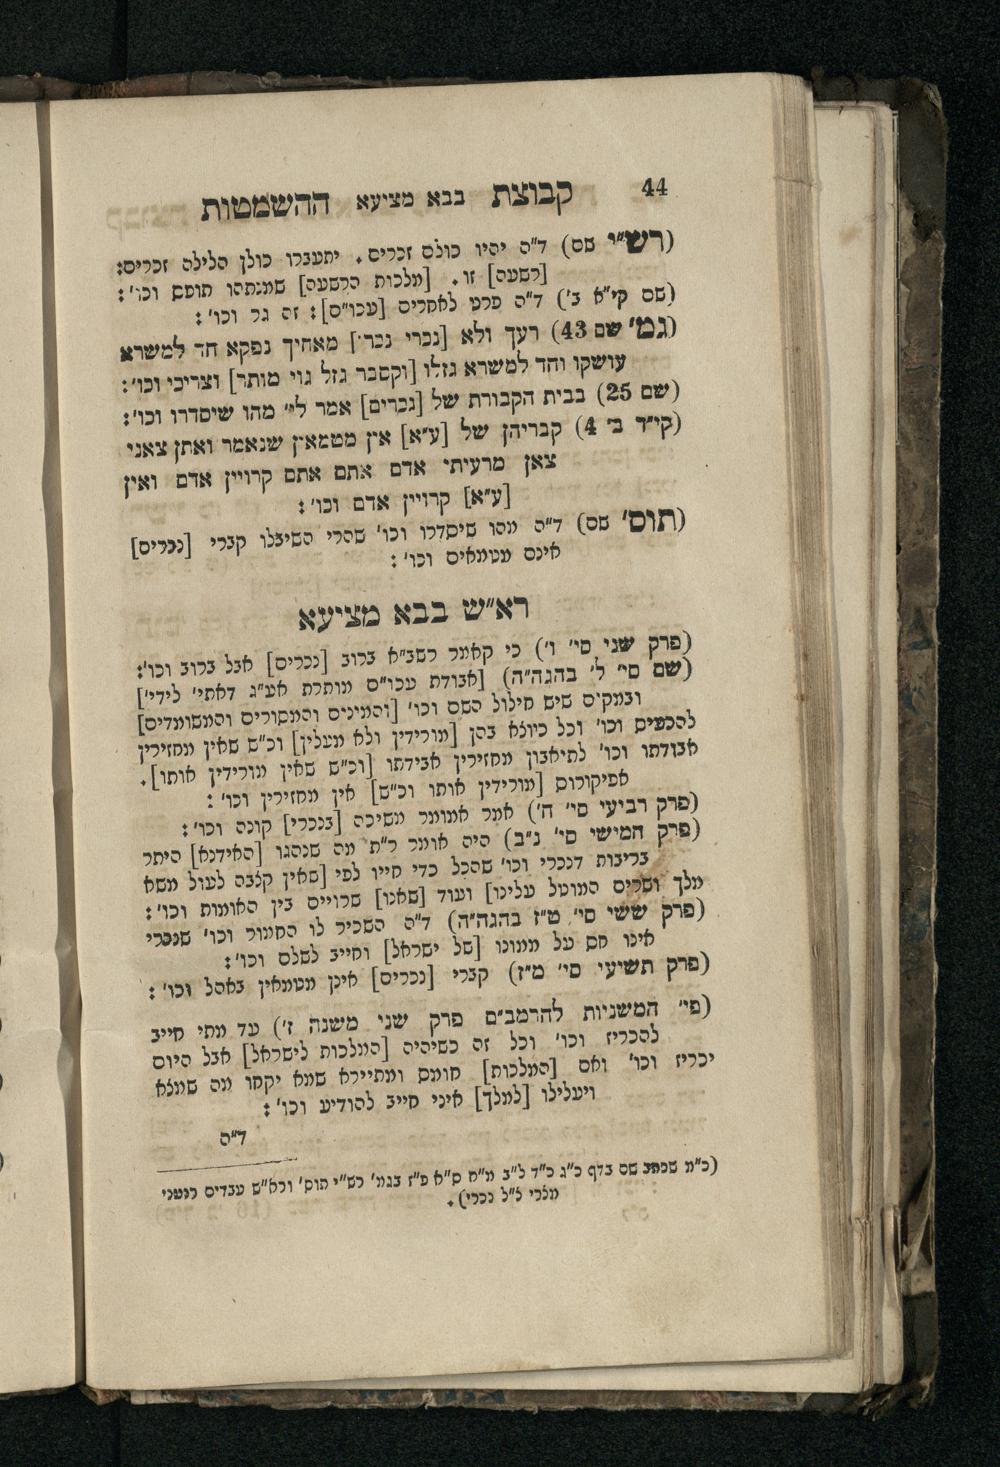 44 קבוצת בבא מציעא ההשמטות
(רש״י שם) ד״ה יהיו כולם זכרים. יתעברו כולן הלילה זכרים:
[רשעה] זו. [מלכות הרשעה] שמנתהו תופס וכו':
(שם קי״א ב') ד״ה פרט לאחרים [עכו״ם]: זה גר וכו':
(גמ' שם 43) רעך ולא [נכרי נכר'] מאחיך נפקא חד למשרא
עושקו וחד למשרא גזלו [וקסבר גזל גוי מותר] וצריכי וכו':
(שם 25) בבית הקבורת של [נכרים] אמר לי' מהו שיסדרו וכו':
(קי״ד ב' 4) קבריהן של [ע״א] אין מטמאין שנאמר ואתן צאני
צאן מרעיתי אדם אתם אתם קרויין אדם ואין
[ע״א] קרויין אדם וכו':
(תוס' שם) ד״ה מהו שיסדרו וכו' שהרי השיבלו קברי [נכרים]
אינם מטמאים וכו':
רא״ש בבא מציעא
(פרק שני סי' ו') כי קאמר רשב״א ברוב [נכרים] אבל ברוב וכו':
(שם סי' ל' בהגה״ה) [אבודת עכו״ם מותרת אע״ג דאתי' לידי']
ובמקים שיש חילול השם וכו' [והמינים והמסורים והמשומדים]
להכעים וכו' וכל כיוצא בהן [מורידין ולא מעלין] וכ״ש שאין מחזירין
אבודתו וכו' לתיאבון מחזירין אבידתו [וכ״ש שאין מורידין אותו].
אפיקורוס [מורידין אותו וכ״ש] אין מחזירין וכו':
(פרק רביעי סי' ח') אמר אמומר משיכה [בנכרי] קונה וכו':
(פרק חמישי סי' נ״ב) היה אומר ר״ת מה שנהגו [האידנא] היתר
בריבות דנכרי וכו' שהכל כדי חייו לפי [שאין קצבה לעול משא
מלך ושרים המוטל עלינו] ועוד [שאנו] שרויים בין האומות וכו':
(פרק ששי סי' ט״ז בהגה״ה) ד״ה השכיר לו החמור וכו' שנכרי
אינו חס על ממונו [של ישראל] וחייב לשלם וכו':
(פרק תשיעי סי' מ״ז) קברי [נכרים] אינן מטמאין באהל וכו':
(פי' המשניות להרמב״ם פרק שני משנה ז') עד מתי חייב
להכריז וכו' וכל זה כשיהיה [המלכות לישראל] אבל היום
יכריז וכו' ואם [המלכות] חומס ומתיירא שמא יקחו מה שמצא
ויעלילו [למלך] איני חייב להודיע וכו':
ד״ה
(כ״מ שכתב שם בדף כ״ג כ״ד ל״ב מ״ח ס״א פ״ז בגמ' רש״י תוס' ורא״ש עבדים כנעני
מצרי צ״ל נכרי).